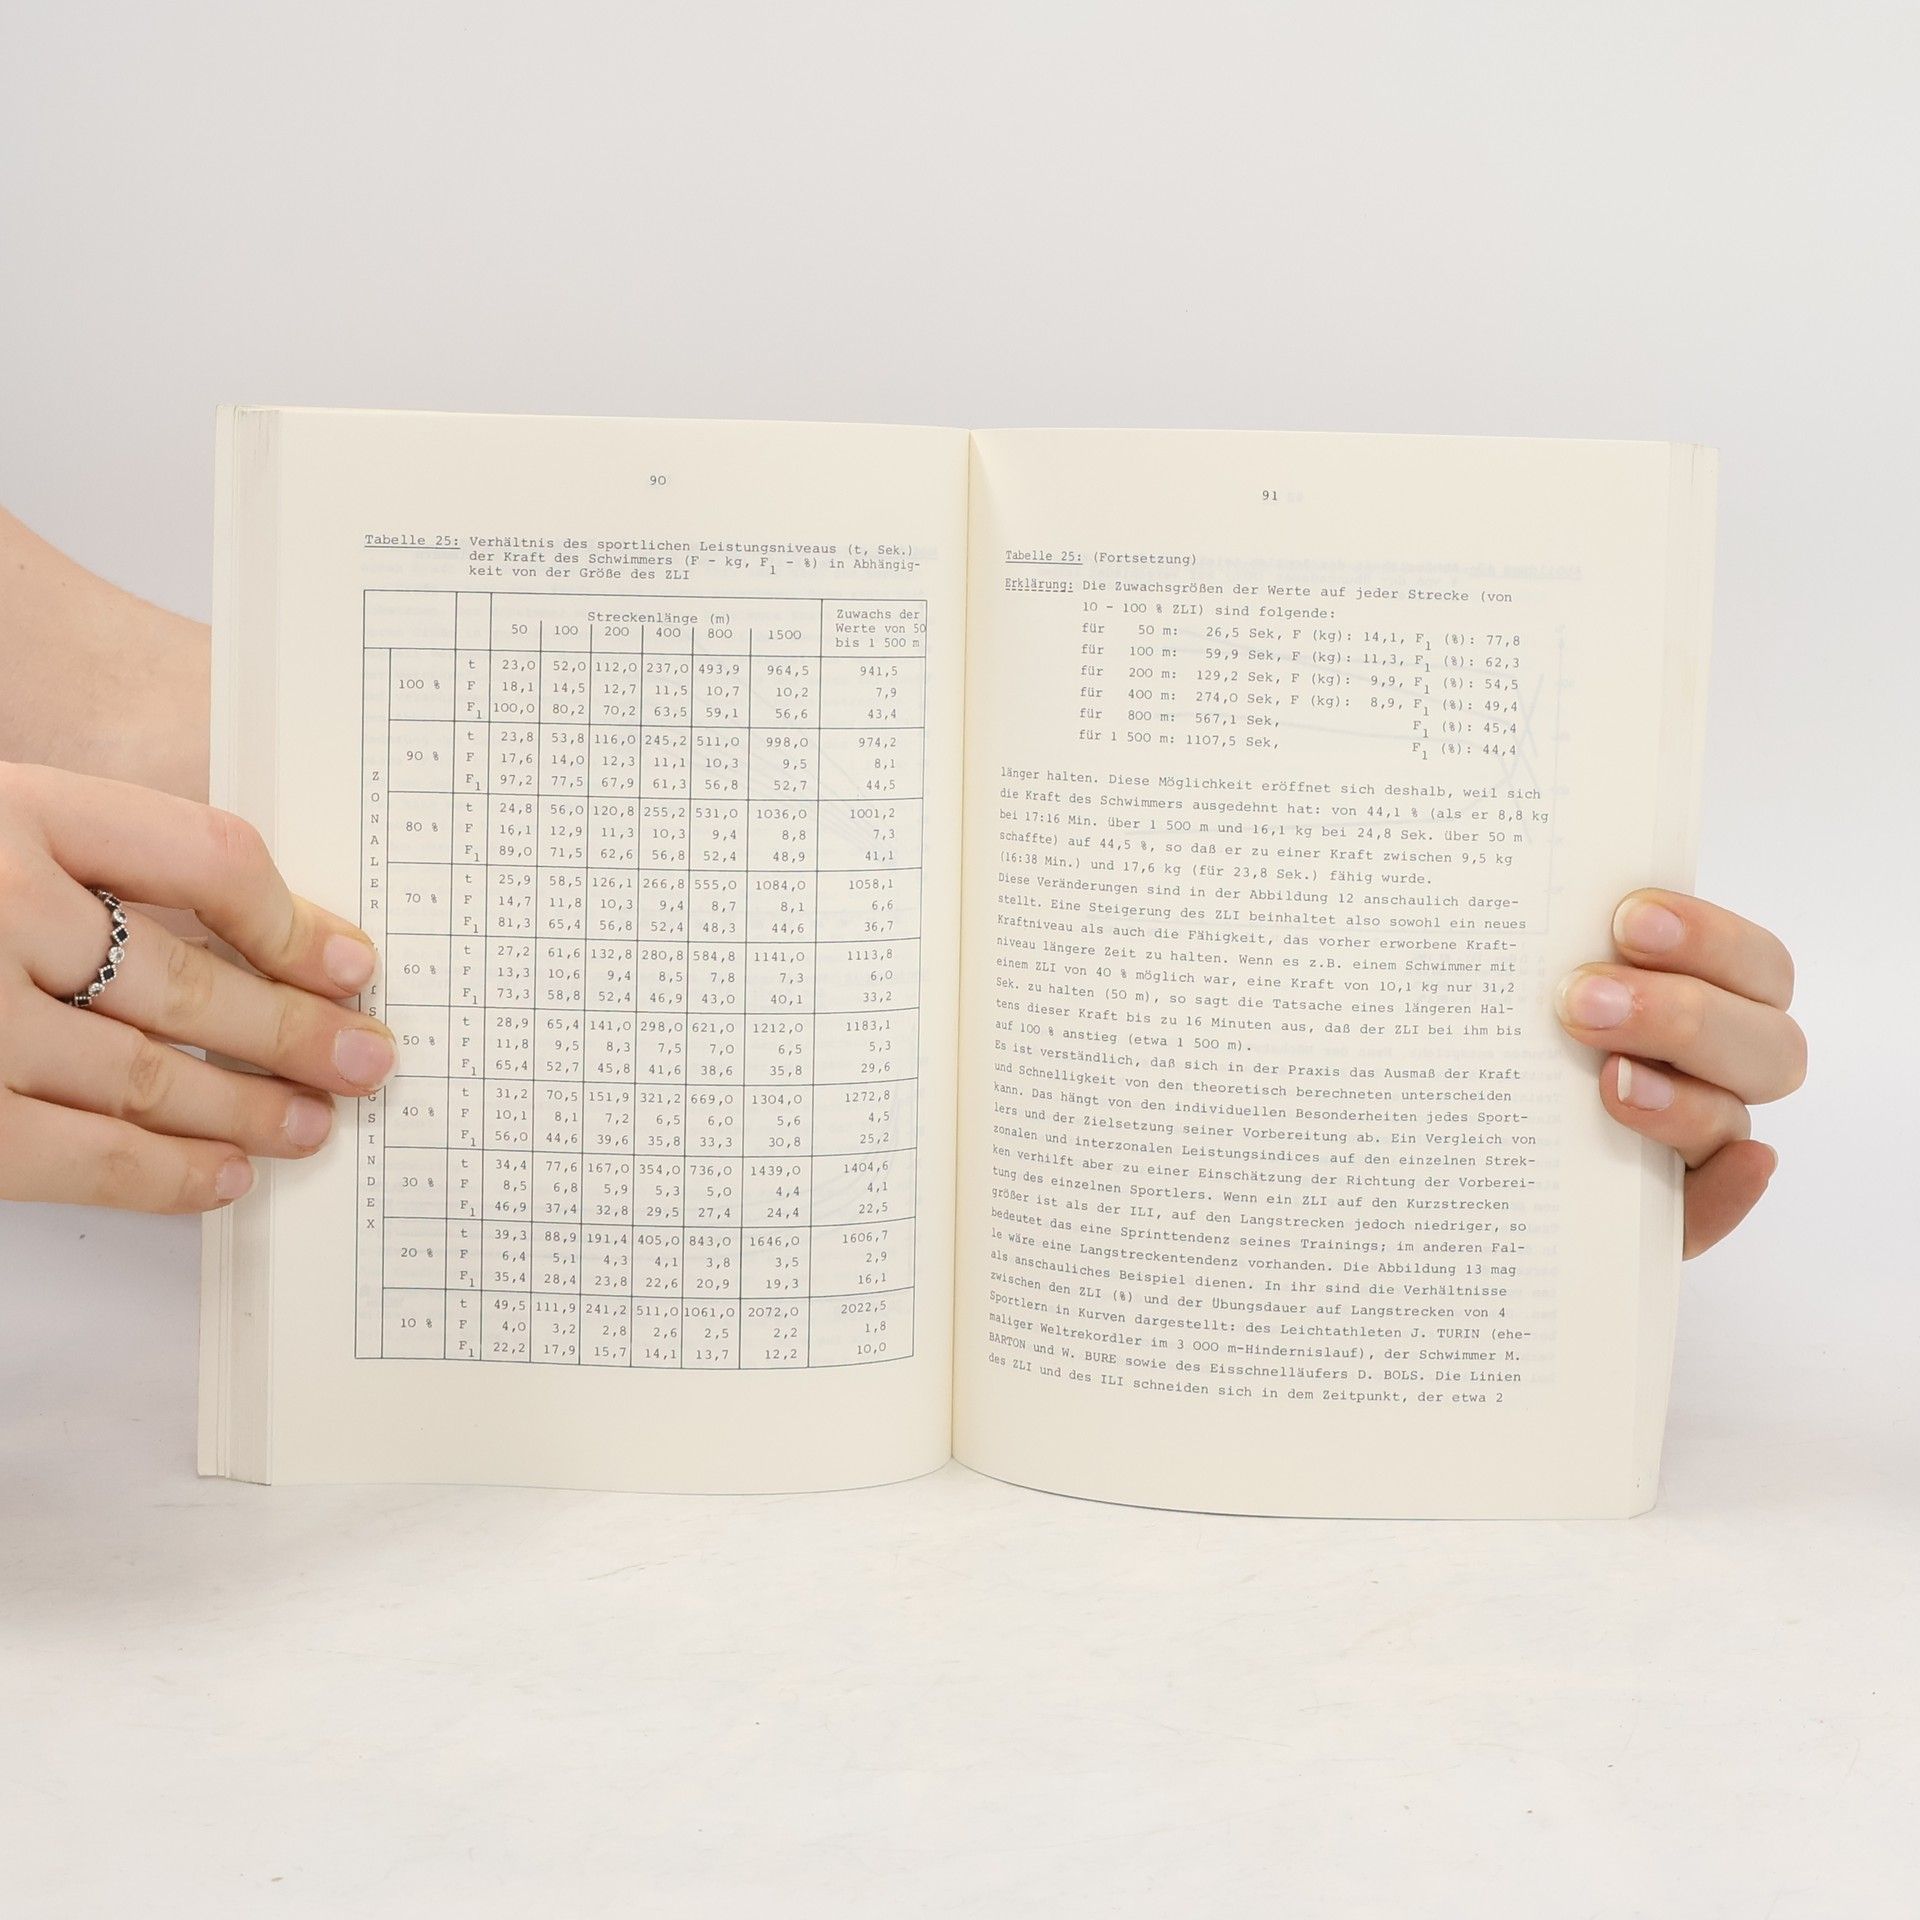 90
Tabelle 25: Verhältnis des sportlichen Leistungsniveaus (t, Sek.)
der Kraft des Schwimmers (F - kg, F1 - %) in Abhängig-
keit von der Größe des ZLI
Streckenlänge (m) Zuwachs der
50 100 200 400 800 1500 Werte von 50
bis 1 500 m
t 23,0 52,0 112,0 237,0 493,9 964,5 941,5
100 % F 18,1 14,5 12,7 11,5 10,7 10,2 7,9
F1 100,0 80,2 70,2 63,5 59,1 56,6 43,4
t 23,8 53,8 116,0 245,2 511,0 998,0 974,2
90 % F 17,6 14,0 12,3 11,1 10,3 9,5 8,1
F1 97,2 77,5 67,9 61,3 56,8 52,7 44,5
t 24,8 56,0 120,8 255,2 531,0 1036,0 1001,2
80 % F 16,1 12,9 11,3 10,3 9,4 8,8 7,3
F1 89,0 71,5 62,6 56,8 52,4 48,9 41,1
t 25,9 58,5 126,1 266,8 555,0 1084,0 1058,1
70 % F 14,7 11,8 10,3 9,4 8,7 8,1 6,6
F1 81,3 65,4 56,8 52,4 48,3 44,6 36,7
t 27,2 61,6 132,8 280,8 584,8 1141,0 1113,8
60 % F 13,3 10,6 9,4 8,5 7,8 7,3 6,0
F1 73,3 58,8 52,4 46,9 43,0 40,1 33,2
t 28,9 65,4 141,0 298,0 621,0 1212,0 1183,1
50 % F 11,8 9,5 8,3 7,5 7,0 6,5 5,3
F1 65,4 52,7 45,8 41,6 38,6 35,8 29,6
t 31,2 70,5 151,9 321,2 669,0 1304,0 1272,8
40 % F 10,1 8,1 7,2 6,5 6,0 5,6 4,5
F1 56,0 44,6 39,6 35,8 33,3 30,8 25,2
t 34,4 77,6 167,0 354,0 736,0 1439,0 1404,6
30 % F 8,5 6,8 5,9 5,3 5,0 4,4 4,1
F1 46,9 37,4 32,8 29,5 27,4 24,4 22,5
t 39,3 88,9 191,4 405,0 843,0 1646,0 1606,7
20 % F 6,4 5,1 4,3 4,1 3,8 3,5 2,9
F1 35,4 28,4 23,8 22,6 20,9 19,3 16,1
t 49,5 111,9 241,2 511,0 1061,0 2072,0 2022,5
10 % F 4,0 3,2 2,8 2,6 2,5 2,2 1,8
F1 22,2 17,9 15,7 14,1 13,7 12,2 10,0
ZONALER
GSINDEX
91
Tabelle 25: (Fortsetzung)
Erklärung: Die Zuwachsgrößen der Werte auf jeder Strecke (von
10 - 100 % ZLI) sind folgende:
für 50 m: 26,5 Sek, F (kg): 14,1, F1 (%): 77,8
für 100 m: 59,9 Sek, F (kg): 11,3, F1 (%): 62,3
für 200 m: 129,2 Sek, F (kg): 9,9, F1 (%): 54,5
für 400 m: 274,0 Sek, F (kg): 8,9, F1 (%): 49,4
für 800 m: 567,1 Sek, F1 (%): 45,4
für 1 500 m: 1107,5 Sek, F1 (%): 44,4
länger halten. Diese Möglichkeit eröffnet sich deshalb, weil sich
die Kraft des Schwimmers ausgedehnt hat: von 44,1 % (als er 8,8 kg
bei 17:16 Min. über 1 500 m und 16,1 kg bei 24,8 Sek. über 50 m
schaffte) auf 44,5 %, so daß er zu einer Kraft zwischen 9,5 kg
(16:38 Min.) und 17,6 kg (für 23,8 Sek.) fähig wurde.
Diese Veränderungen sind in der Abbildung 12 anschaulich darge-
stellt. Eine Steigerung des ZLI beinhaltet also sowohl ein neues
Kraftniveau als auch die Fähigkeit, das vorher erworbene Kraft-
niveau längere Zeit zu halten. Wenn es z.B. einem Schwimmer mit
einem ZLI von 40 % möglich war, eine Kraft von 10,1 kg nur 31,2
Sek. zu halten (50 m), so sagt die Tatsache eines längeren Hal-
tens dieser Kraft bis zu 16 Minuten aus, daß der ZLI bei ihm bis
auf 100 % anstieg (etwa 1 500 m).
Es ist verständlich, daß sich in der Praxis das Ausmaß der Kraft
und Schnelligkeit von den theoretisch berechneten unterscheiden
kann. Das hängt von den individuellen Besonderheiten jedes Sport-
lers und der Zielsetzung seiner Vorbereitung ab. Ein Vergleich von
zonalen und interzonalen Leistungsindices auf den einzelnen Strek-
ken verhilft aber zu einer Einschätzung der Richtung der Vorberei-
tung des einzelnen Sportlers. Wenn ein ZLI auf den Kurzstrecken
größer ist als der ILI, auf den Langstrecken jedoch niedriger, so
bedeutet das eine Sprinttendenz seines Trainings; im anderen Fal-
le wäre eine Langstreckentendenz vorhanden. Die Abbildung 13 mag
als anschauliches Beispiel dienen. In ihr sind die Verhältnisse
zwischen den ZLI (%) und der Übungsdauer auf Langstrecken von 4
Sportlern in Kurven dargestellt: des Leichtathleten J. TURIN (ehe-
maliger Weltrekordler im 3 000 m-Hindernislauf), der Schwimmer M.
BARTON und W. BURE sowie des Eisschnelläufers D. BOLS. Die Linien
des ZLI und des ILI schneiden sich in dem Zeitpunkt, der etwa 2